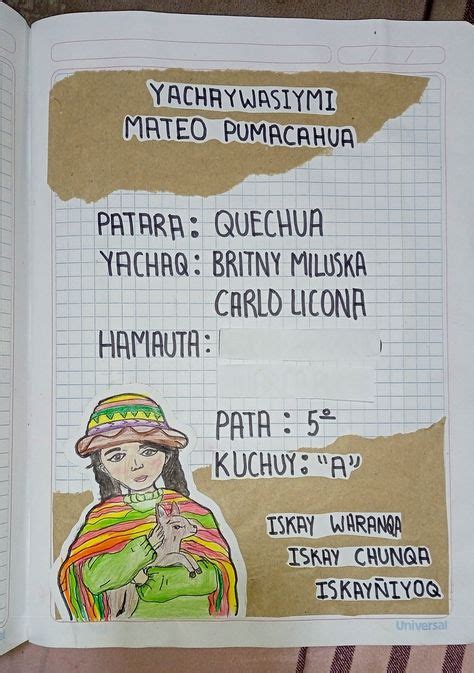 YACHAYWASIYMI
MATEO PUMACAHUA
PATARA: QUECHUA
YACHAQ: BRITNY MILUSKA
CARLO LICONA
HAMAUTA:
PATA: 5º
KUCHUY: "A"
ISKAY WARANQA
ISKAY CHUNQA
ISKAYÑIYOQ
Universal